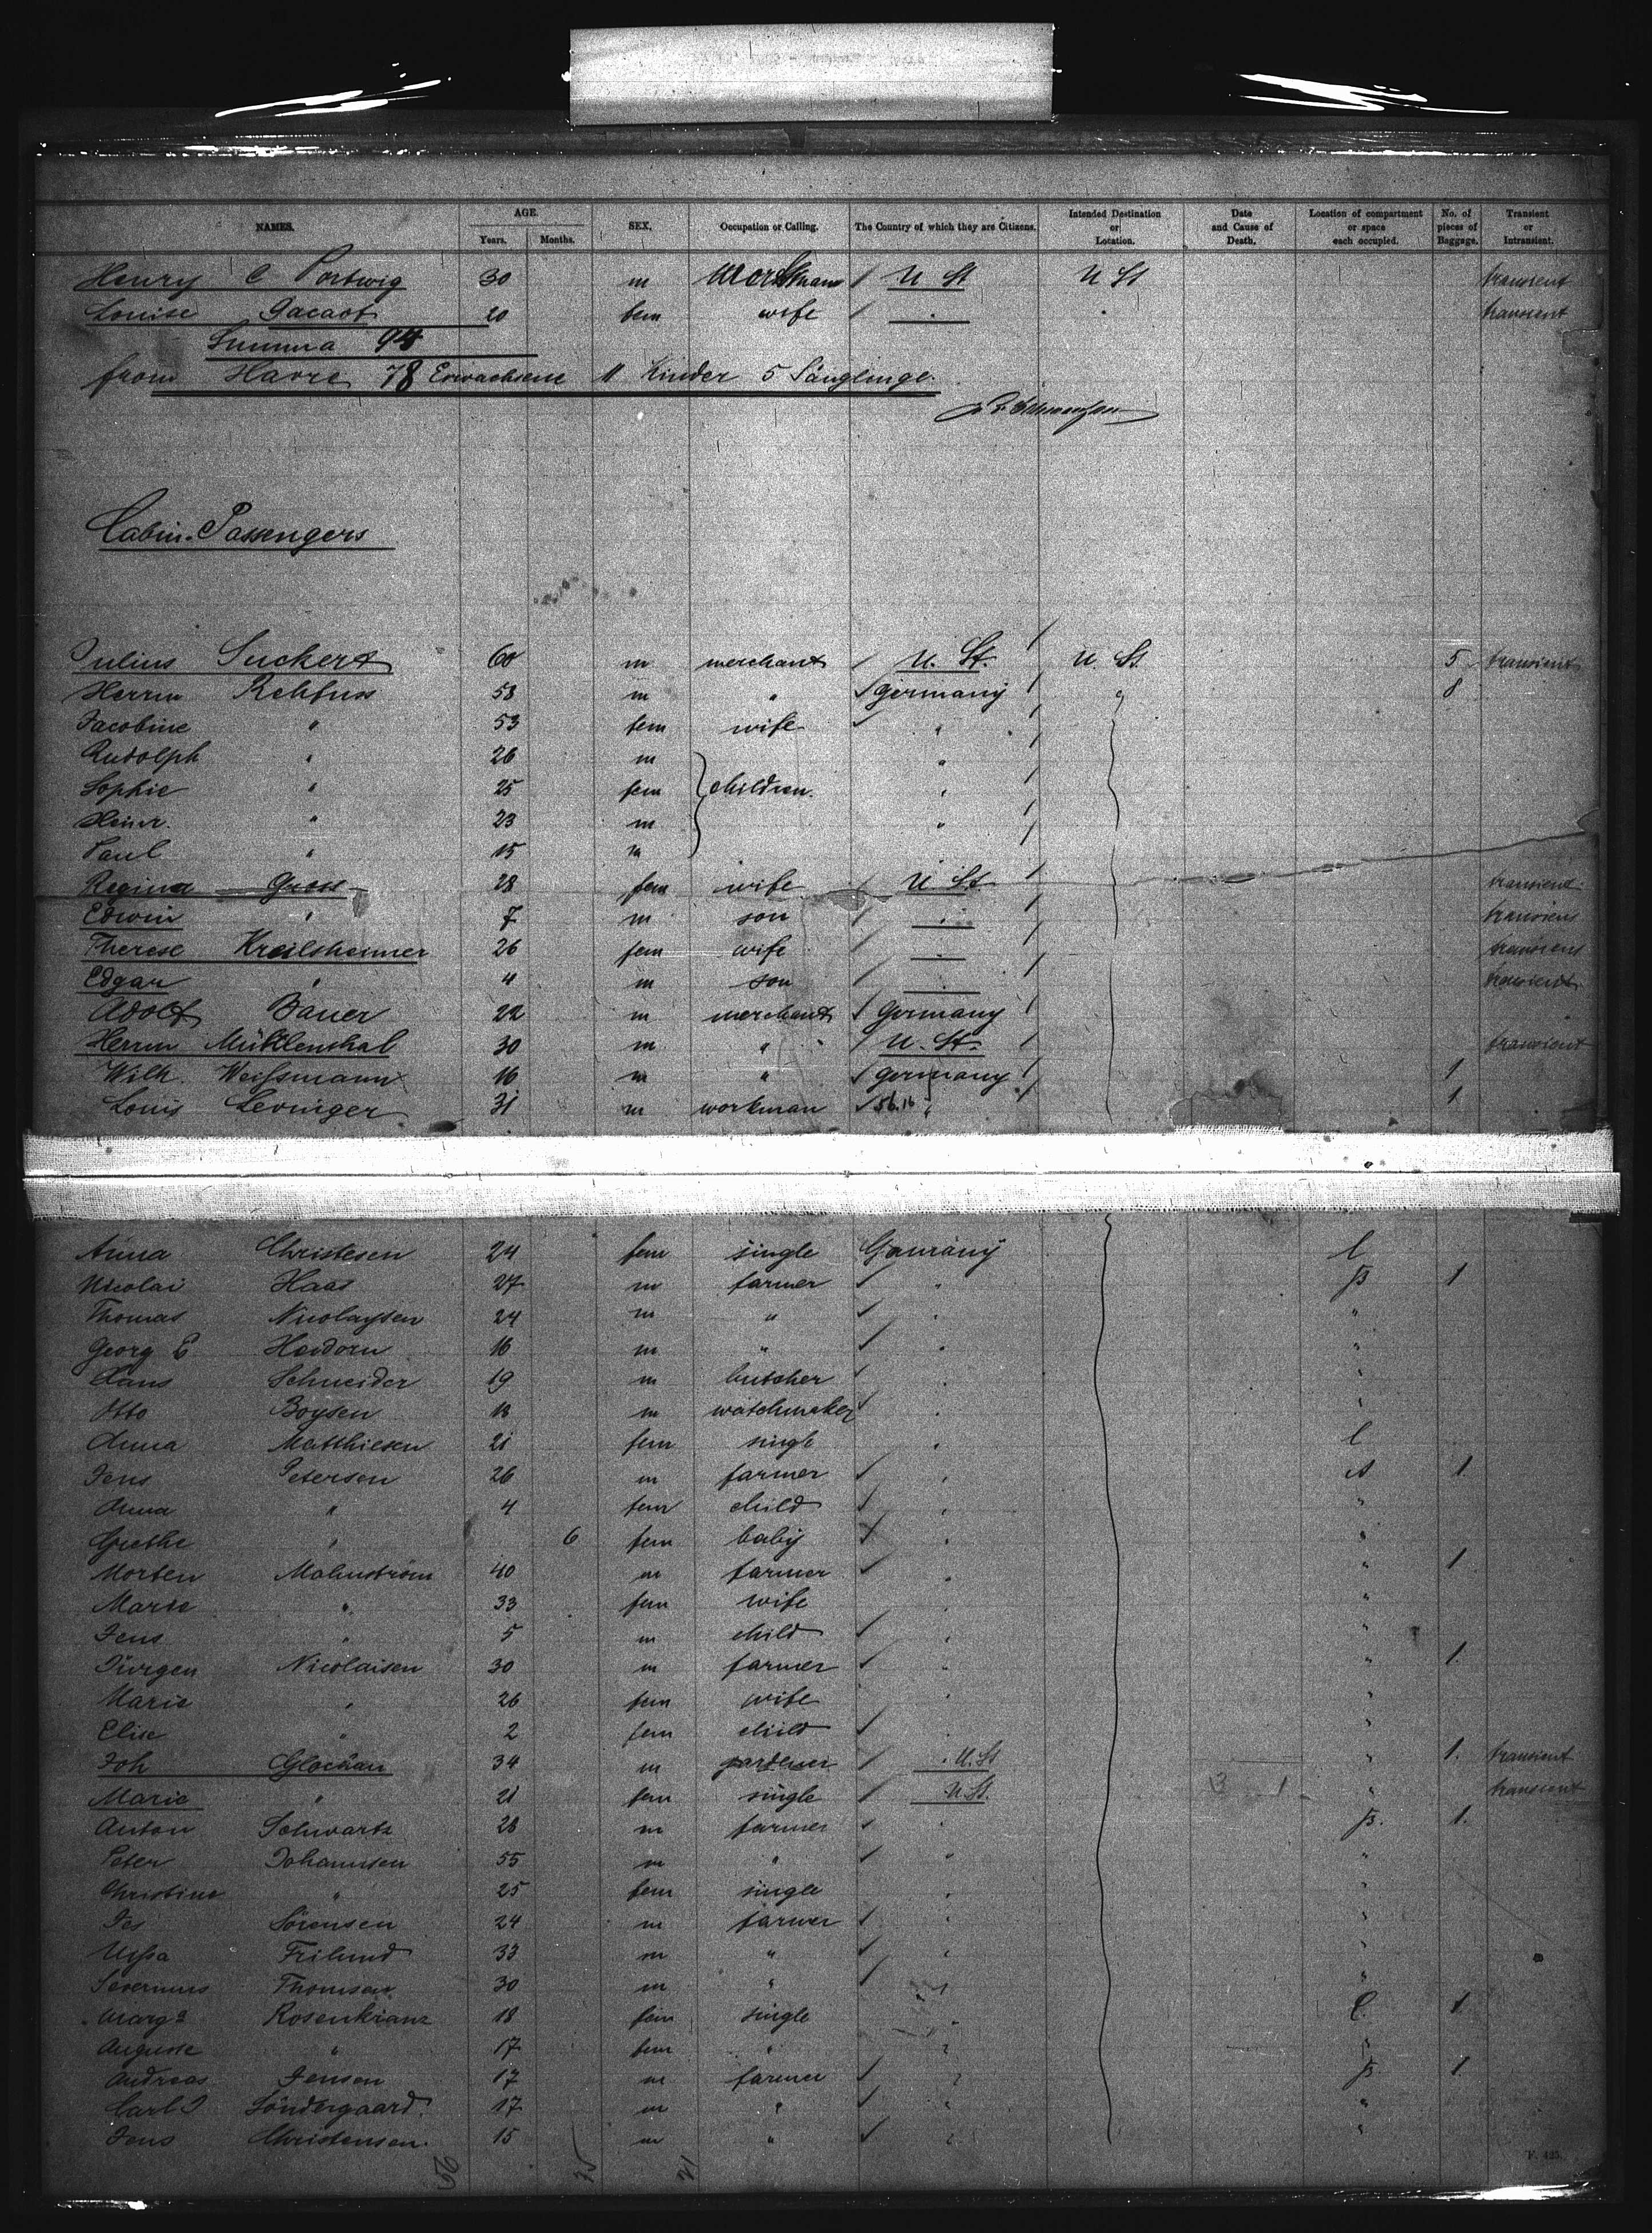 NAMES. AGE. Years. Months. SEX. Occupation or Calling. The Country of which they are Citizens. Intended Destination or Location. Date and Cause of Death. Location of compartment or space each occupied. No. of pieces of Baggage. Transient or Intransient.
Henry C Portwig 30 m Workman / U St U St transient
Louise Gacaot 20 fem wife / " " transient
Summa 94
from Havre 78 Erwachsene 11 Kinder 5 Säuglinge.
Cabin-Passengers
Julius Suckert 60 m merchant / U. St. / U. St. 5 transient
Herrm Rehfuss 58 m " ✓ Germany / " 8
Jacobine " 53 fem wife ✓ " /
Rudolph " 26 m " /
Sophie " 25 fem children. " /
Heinr. " 23 m " /
Paul " 15 m
Regina Guess 28 fem wife / U St / transient
Edwin " 7 m son / " / transient
Therese Kreilsheimer 26 fem wife / " / transient
Edgar " 4 m son / " / transient
Adolf Bauer 22 m merchant ✓ Germany /
Herrm Mühlenthal 30 m " / U. St. / transient
Wilh. Weißmann 16 m " ✓ Germany / 1
Louis Levinger 31 m workman ✓ 56.16 " / 1.
Anna Christesen 24 fem single Germany C
Nicolai Haas 27 m farmer ✓ " B 1
Thomas Nicolaysen 24 m " ✓ " "
Georg E. Heidorn 16 m " ✓ " "
Hans Schneider 19 m butcher ✓ " "
Otto Boysen 18 m watchmaker ✓ " "
Anna Matthiesen 21 fem single " C
Jens Petersen 26 m farmer ✓ " A 1
Anna " 4 fem child ✓ " "
Grethe " 6 fem baby ✓ " "
Morten Malmström 40 m farmer ✓ " " 1
Marie " 33 fem wife " "
Jens " 5 m child ✓ " "
Jürgen Nicolaisen 30 m farmer ✓ " " 1.
Marie " 26 fem wife " "
Elise " 2 fem child ✓ " "
Joh Glockau 34 m gardener / U. St " 1. transient
Marie " 21 fem single / U. St. " transient
Anton Schwartz 28 m farmer ✓ " B. 1.
Peter Johannsen 55 m " ✓ " "
Christine " 25 fem single " "
Jes Sörensen 24 m farmer ✓ " "
Frilund 33 m " ✓ " "
Severinus Thomsen 30 m " ✓ " "
Marga Rosenkranz 18 fem single " C. 1
Auguste " 17 fem " " "
Andreas Jensen 17 m farmer ✓ " B. 1
Carl J Söndergaard. 17 m " ✓ " "
Jens Christensen. 15 m " ✓ " "
F. 425.